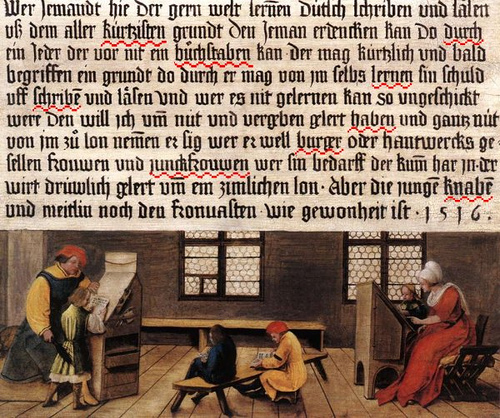 Wer Jemandt hie der gern welt lernen Dütsch schriben und läsen
uß dem aller kürtzisten grundt den Jeman erdencken kan Do durch
ein Jeder der vor nit ein büchstaben kan der mag kürtzlich und bald
begriffen ein grundt do durch er mag von jm selbs lernen sin schuld
uff schribē und läsen und wer es nit gelernen kan so ungeschickt
were Den will ich um nüt und vergeben gelert haben und gantz nüt
von jm zů lon nemen er sig wer er well burger oder hantwercks ge-
sellen frouwen und junckfrouwen wer sin bedarff der kum har jn der
wirt drüwlich gelert um ein zimlichen lon · Aber die junge knabē
und meitlin noch den fronuasten wie gewonheit ist · 1516 ·